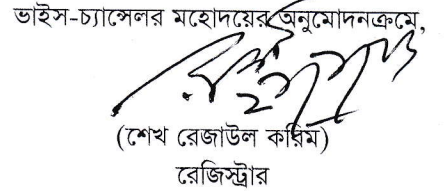 ভাইস-চ্যান্সেলর মহোদয়ের অনুমোদনক্রমে,
(শেখ রেজাউল করিম)
রেজিস্ট্রার